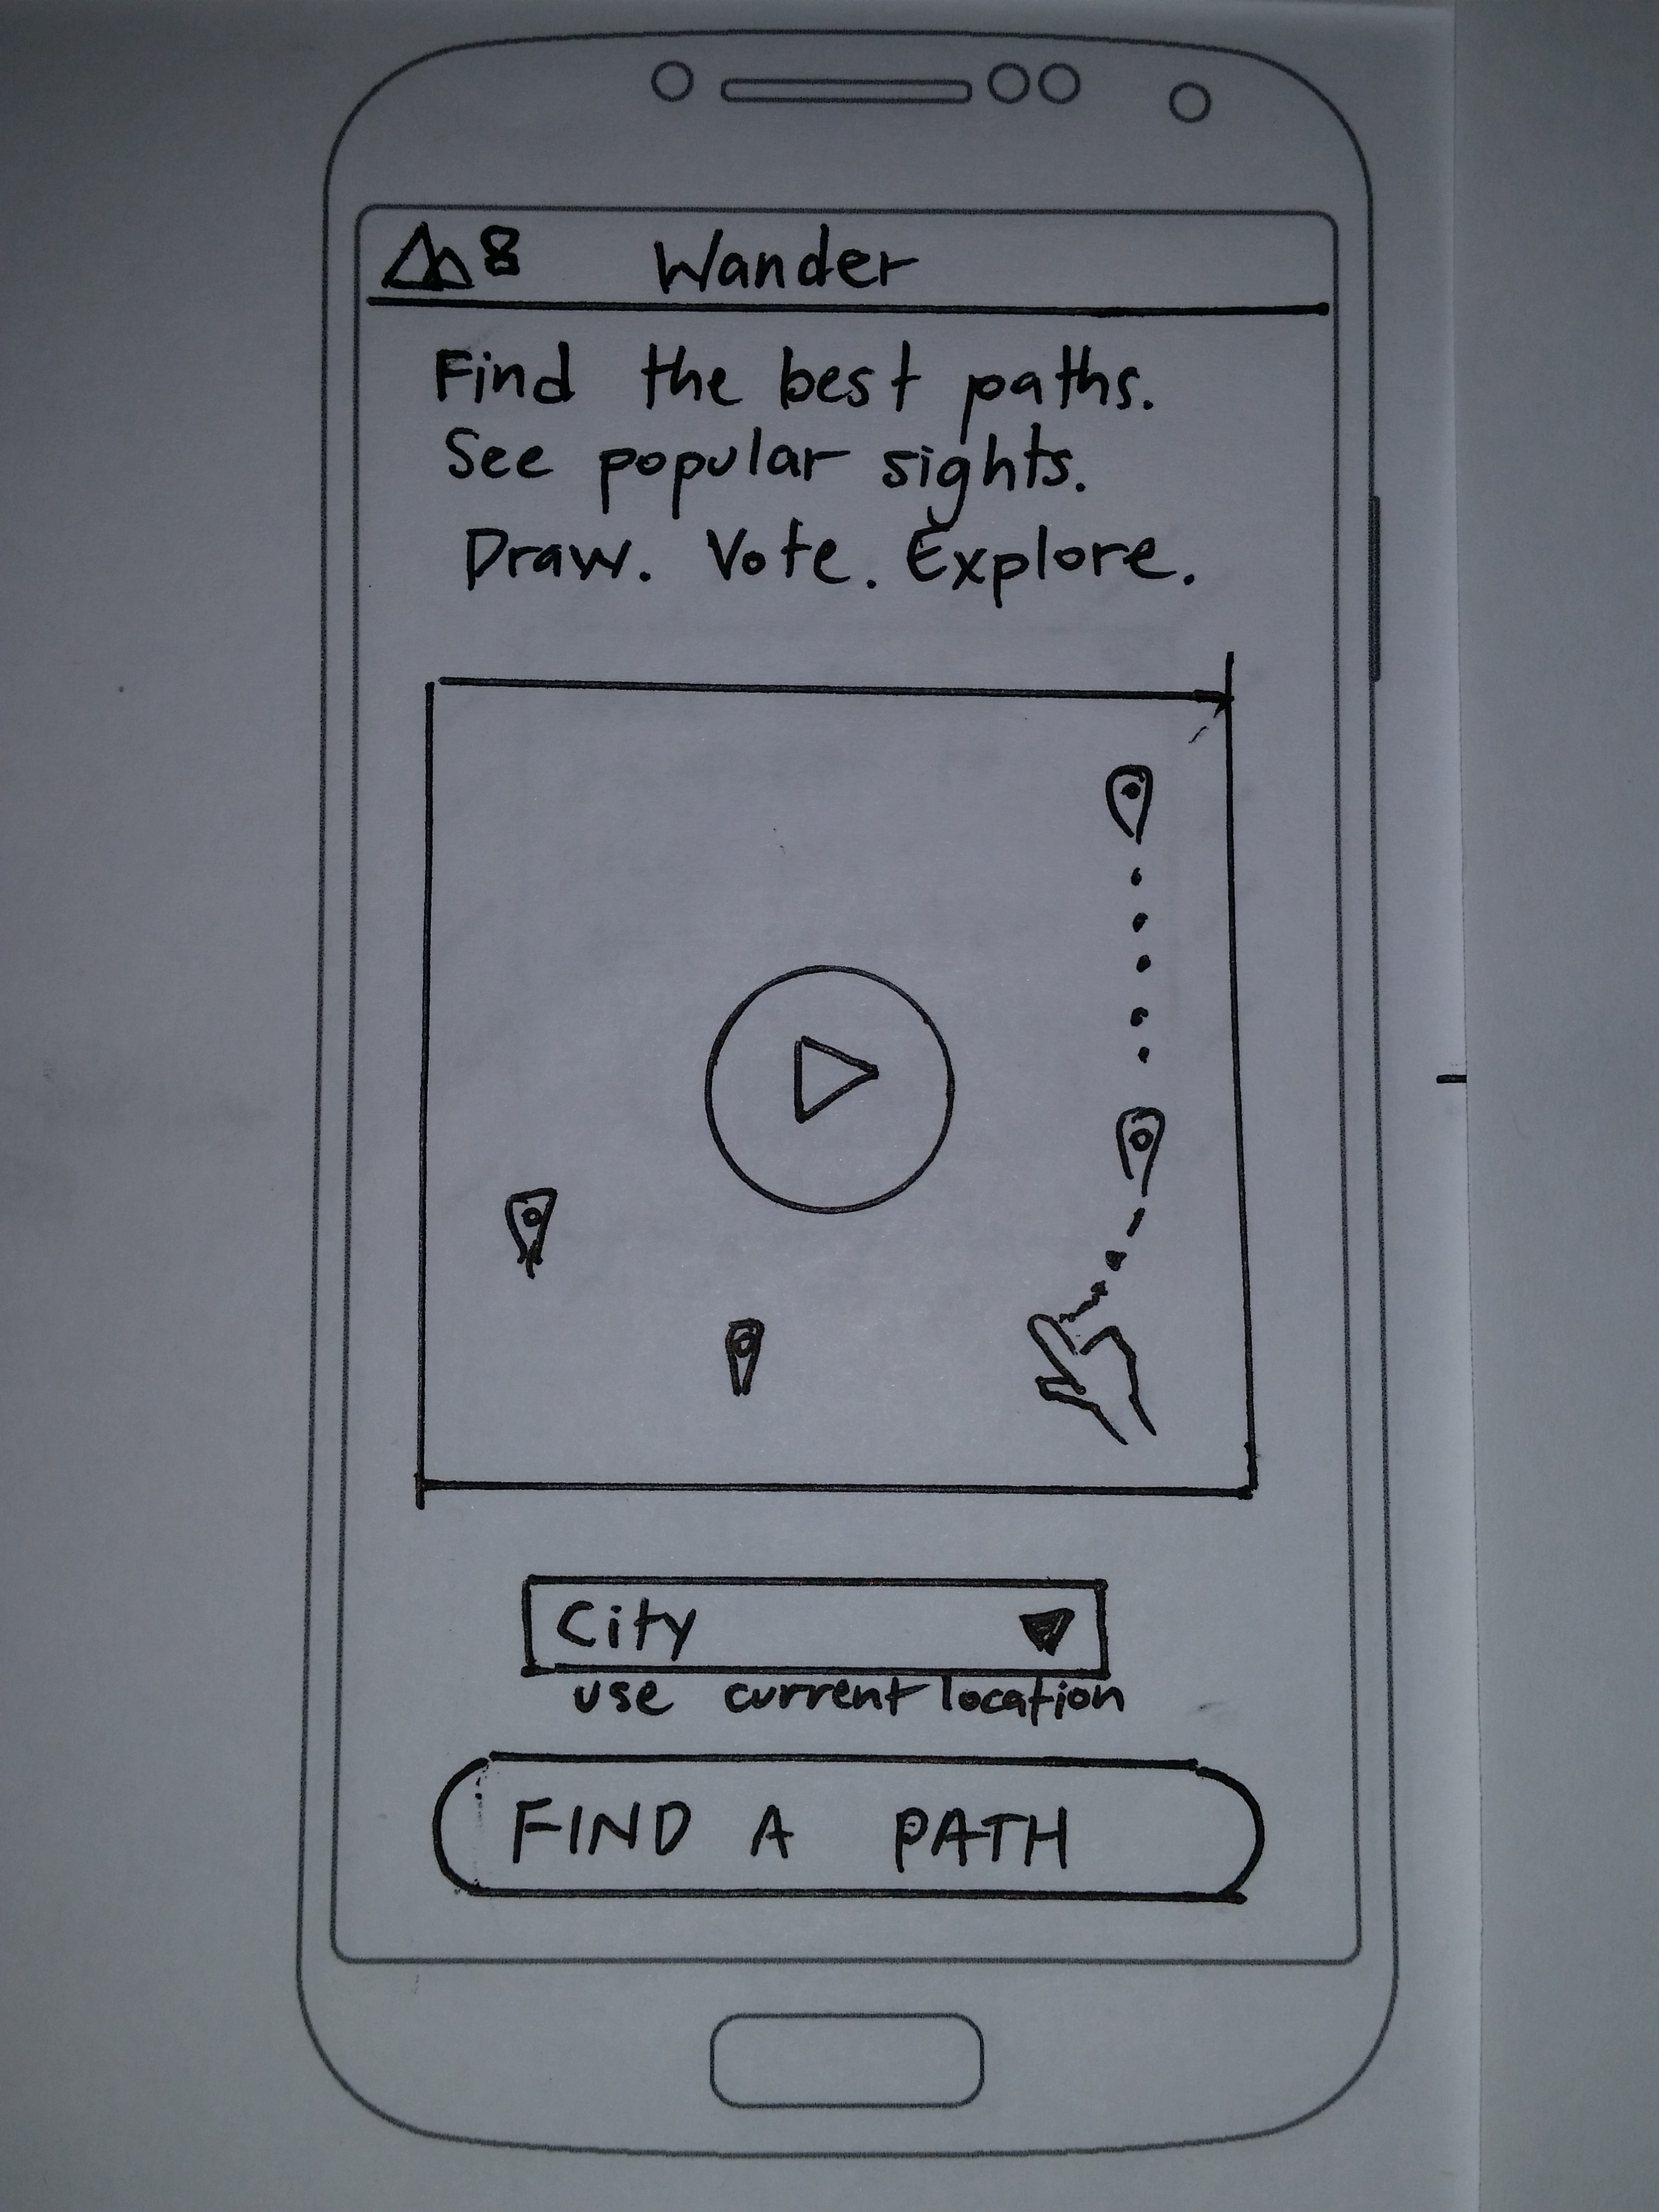 Wander
Find the best paths.
See popular sights.
Draw. Vote. Explore.
City
use current location
FIND A PATH